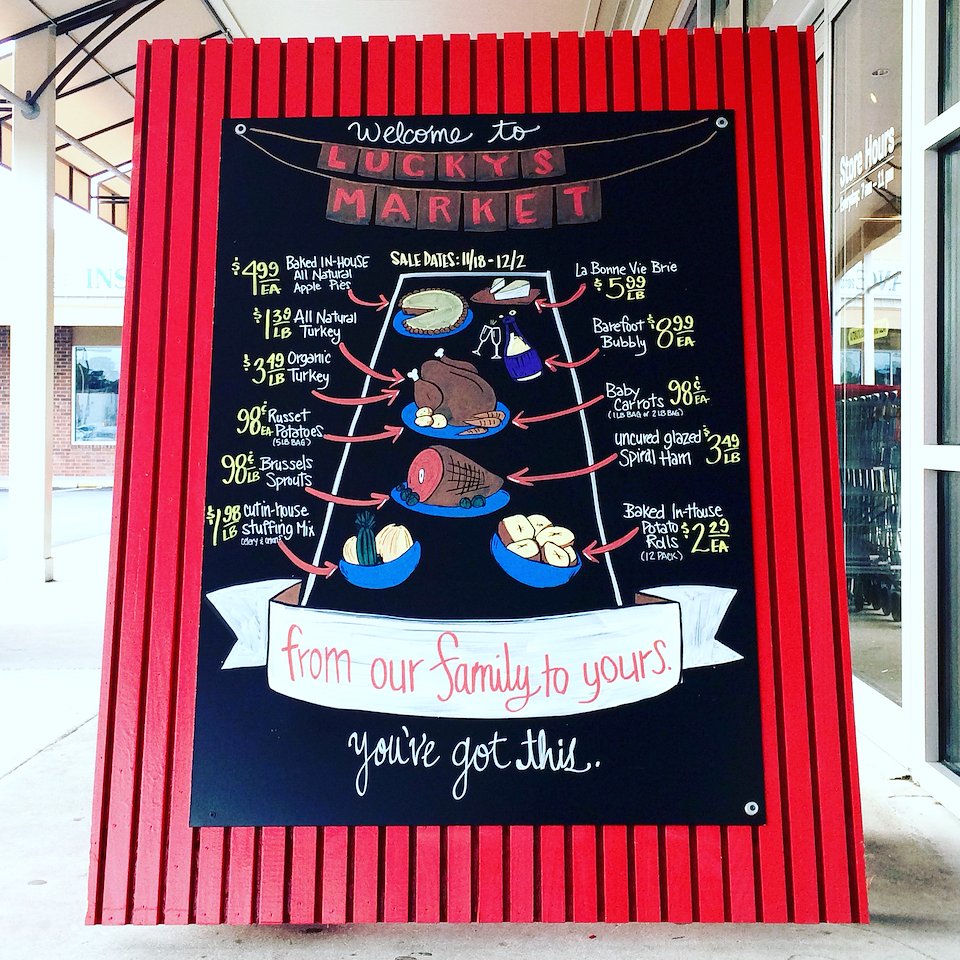 Welcome to
LUCKY'S
MARKET
SALE DATES: 11/18 - 12/2
$4.99 EA
Baked IN-HOUSE
All Natural
Apple Pies
$1.39 LB
All Natural
Turkey
$3.49 LB
Organic
Turkey
98¢ EA
Russet
Potatoes
(5 LB BAG)
98¢ LB
Brussels
Sprouts
$1.98 LB
cut in-house
stuffing Mix
La Bonne Vie Brie
$5.99 LB
Barefoot
Bubbly
$8.99 EA
Baby
Carrots
98¢ EA
(1 LB BAG or 2 LB BAG)
uncured glazed
Spiral Ham
$3.49 LB
Baked In-House
Potato
Rolls
(12 PACK)
$2.29 EA
from our family to yours.
you've got this.
Store Hours
INS